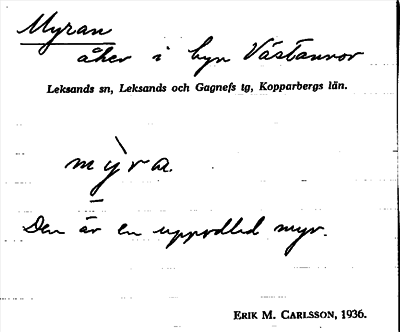 Myran
åker i byn Västannor
Leksands sn, Leksands och Gagnefs tg, Kopparbergs län.
mỳra.
Den är en uppodlad myr.
ERIK M. CARLSSON, 1936.